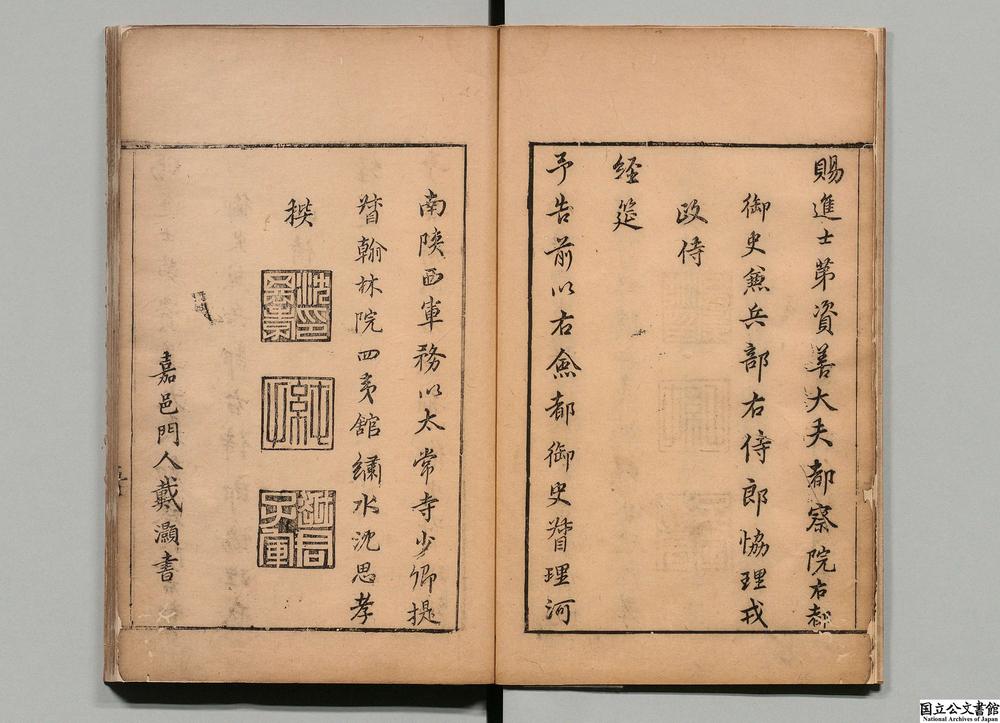 賜進士第資善大夫都察院右都
御史兼兵部右侍郎恊理戎
政侍
經筵
予告前以右僉都御史督理河
南陝西軍務以太常寺少卿提
督翰林院四夷館繡水沈思孝
純父
嘉邑門人戴灝書
国立公文書館
National Archives of Japan